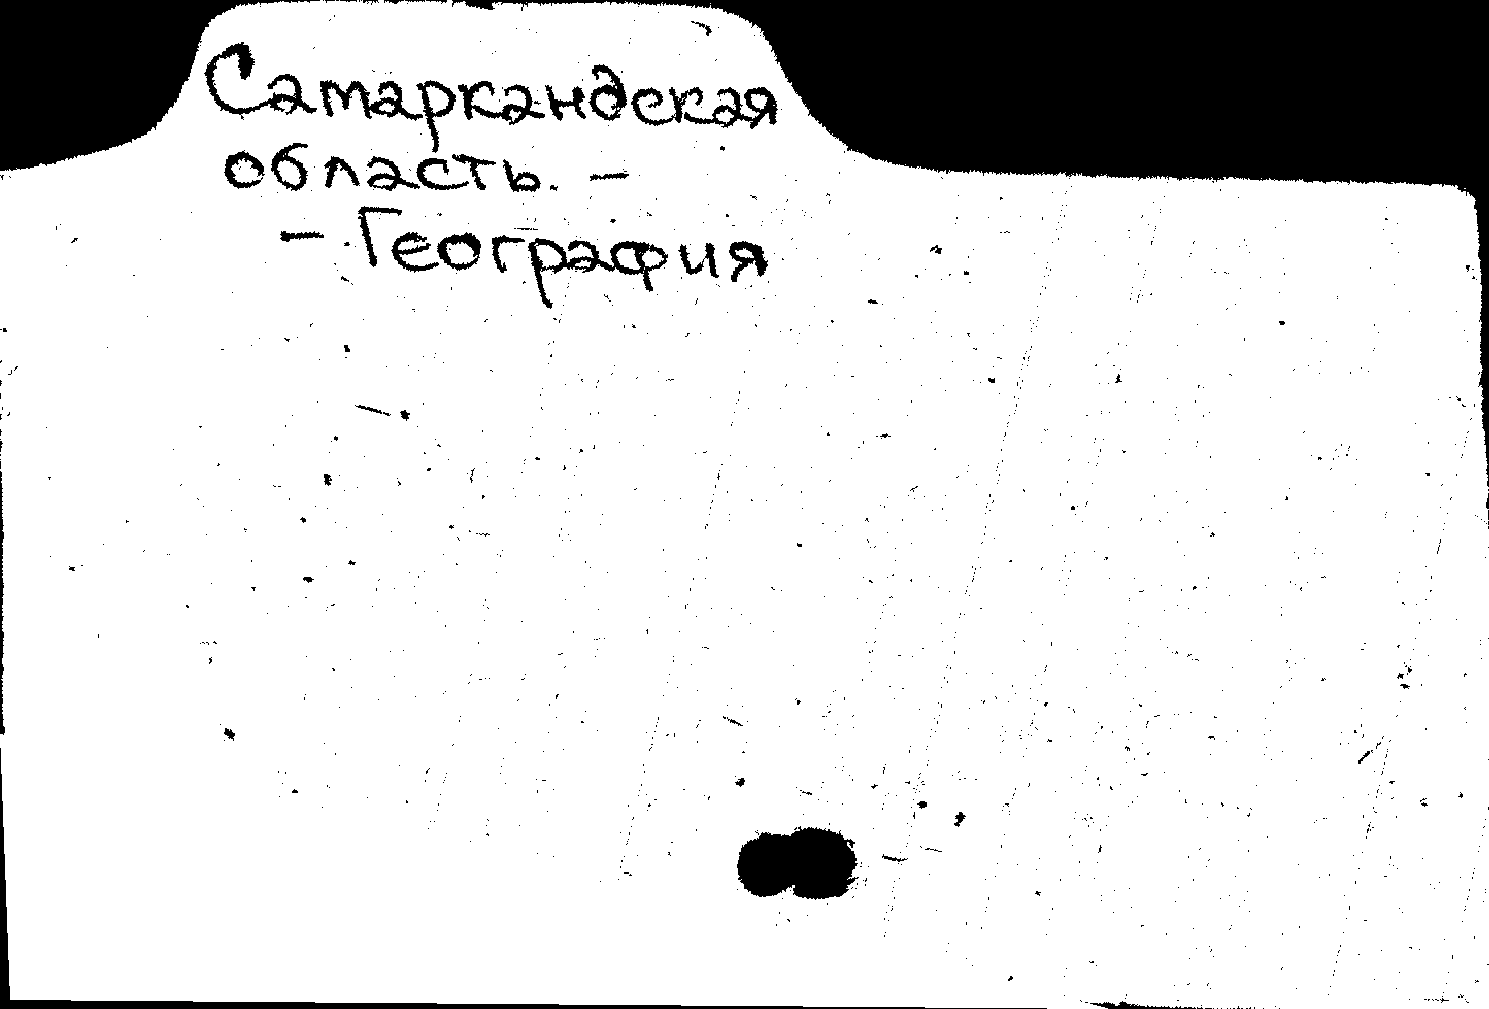 Самаркандская
область. –
– География